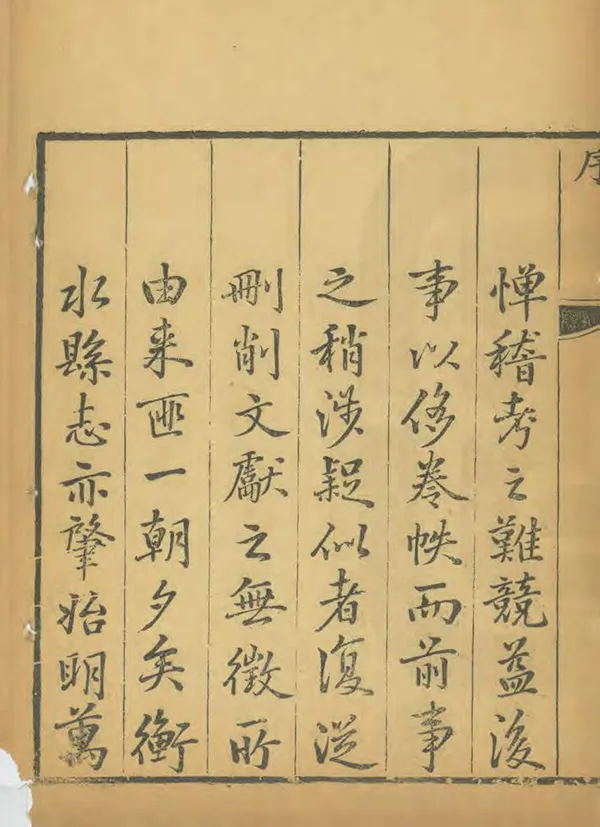 序
憚稽考之難競益後
事以侈卷帙而前事
之稍涉疑似者復從
刪削文獻之無徵所
由来匪一朝夕矣衡
水縣志亦肇始明萬